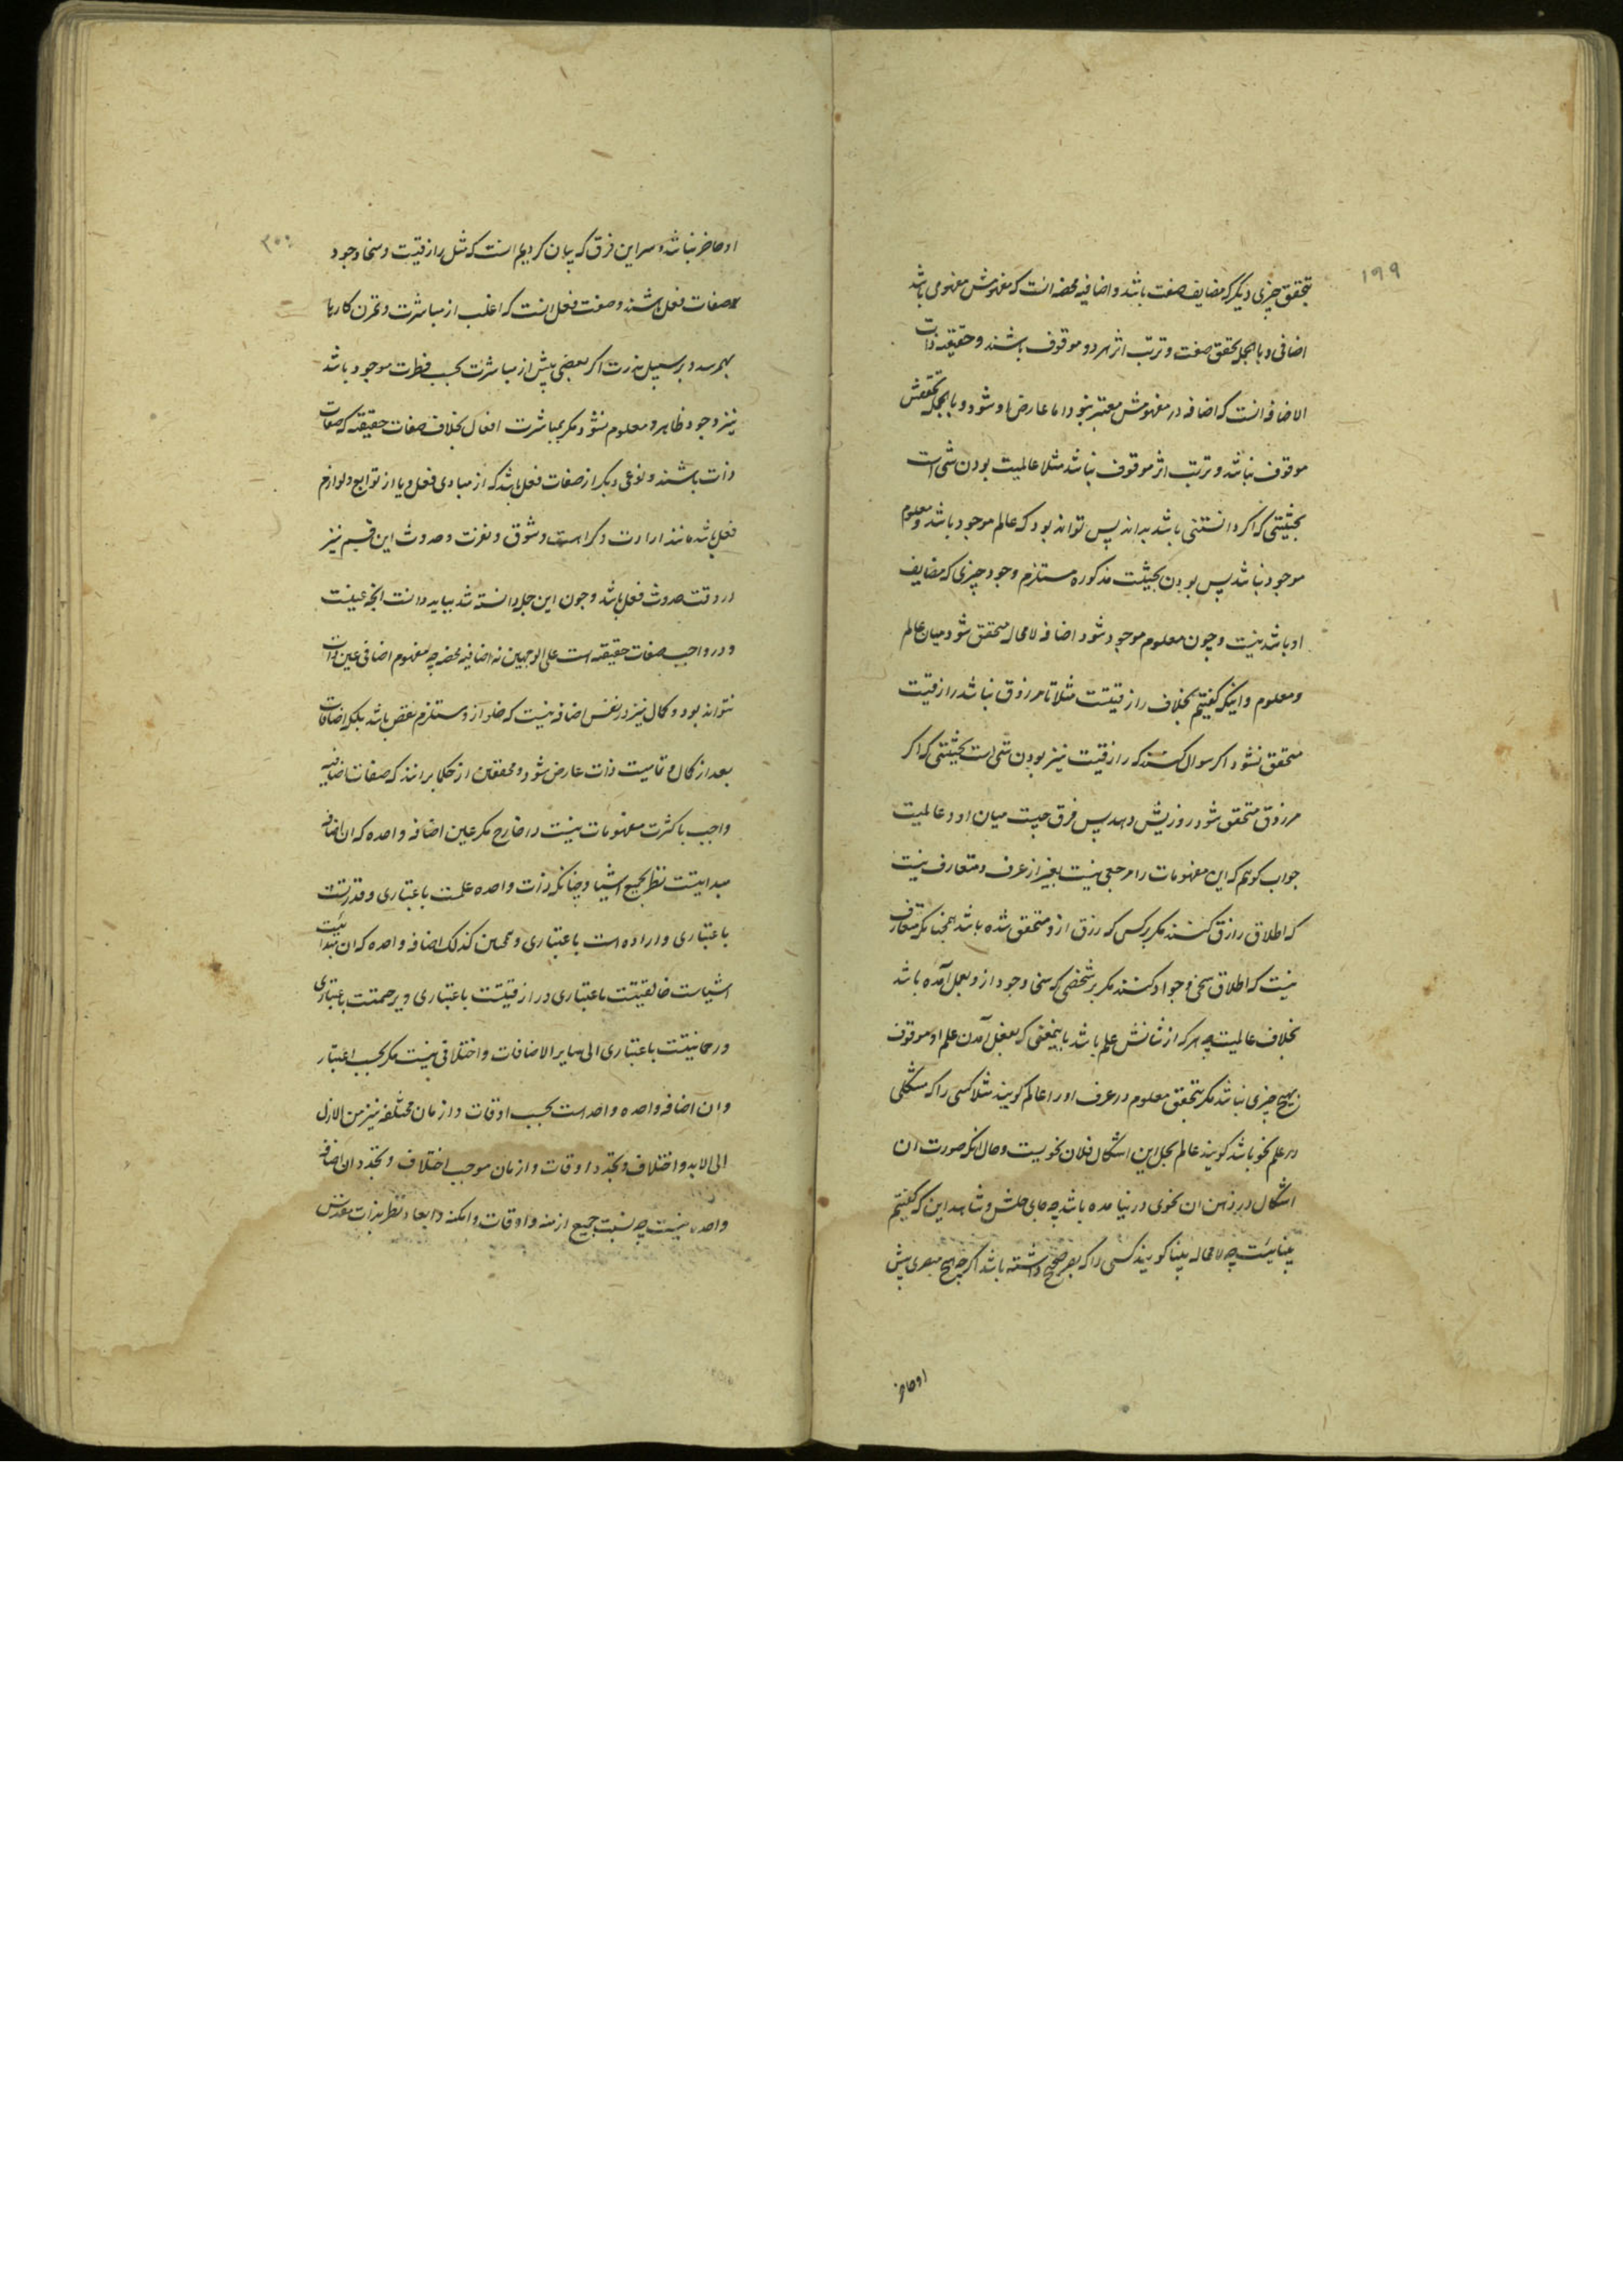 ۱۹۹
بتحقق چیزی دیگر که مضایف صفت باشد و اضافیه محضه انست که مفهومش مفهومی باشد
اضافی و بالجمله تحقق صفت و ترتب اثر هر دو موقوف باشند و حقیقیه ذات
الاضافه انست که اضافه در مفهومش معتبر نبود اما عارض او شود و بالجمله تحققش
موقوف نباشد و ترتب اثر موقوف نباشد مثلا عالمیت بودن شی است
بحیثیتی که اگر دانستنی باشد بداند پس تواند بود که عالم موجود باشد و معلوم
موجود نباشد پس بودن بحیثیت مذکوره مستلزم وجود چیزی که مضایف
او باشد نیست و چون معلوم موجود شود اضافه لامحاله متحقق شود میان عالم
و معلوم و اینکه گفتیم بخلاف رازقیتت مثلا تا مرزوق نباشد رازقیت
متحقق نشود اگر سوال کنند که رازقیت نیز بودن شی است بحیثیتی که اگر
مرزوق متحقق شود روزیش دهد پس فرق چیست میان او و عالمیت
جواب گویم که این مفهومات را مرجعی نیست بغیر از عرف و متعارف نیست
که اطلاق رازق کنند مگر بر کسی که رزق ازو متحقق شده باشد همچنانکه متعارف
نیست که اطلاق سخی و جواد کنند مگر بر شخصی که سخی و جود ازو بعمل آمده باشد
بخلاف عالمیت چه هر که از شانش علم باشد باینمعنی که بفعل آمدن علم او موقوف
بهیچ چیزی نباشد مگر بتحقق معلوم در عرف او را عالم گویند مثلا کسی را که مشکلی
در علم نحو باشد گویند عالم بحل این اشکال فلان نحویست و حال انکه صورت ان
اشکال در ذهن ان نحوی در نیامده باشد چه جای حلش و شاهد این که گفتیم
بیناییت چه لامحاله بینا گویند کسی را که بصر صحیح داشته باشد اگرچه هیچ مبصری پیش
او حاضر
۲۰۰
او حاضر نباشد و سر این فرق که بیان کردیم انست که مثل رازقیت و سخا و جود
صفات فعل باشند و صفت فعل انست که اغلب از مباشرت و تمرن کارها
بهم رسد و بر سبیل ندرت اگر بعضی پیش از مباشرت بحسب فطرت موجود باشد
نیز وجود ظاهر و معلوم نشود مگر بمباشرت افعال بخلاف صفات حقیقیه که صفات
ذات باشند و نوعی دیگر از صفات فعل باشد که از مبادی فعل و یا از توابع و لوازم
فعل باشد مانند ارادت و کراهت و شوق و نفرت و حدوث این قسم نیز
در وقت حدوث فعل باشد و چون این جمله دانسته شد بباید دانست انچه عینست
و در واجب صفات حقیقیه است علی الوجهین نه اضافیه محضه چه مفهوم اضافی عین ذات
نتواند بود و کمال نیز در نفس اضافه نیست که خلو از و مستلزم نقص باشد بلکه اضافات
بعد از کمال و تمامیت ذات عارض شود و محققین از حکما برانند که صفات اضافیه
واجب با کثرت مفهومات نیست در خارج مگر عین اضافه واحده که ان اضافه
مبدایتت نظر بجمیع اشیا و چنانکه ذات واحده علمست باعتباری و قدرتست
باعتباری و اراده است باعتباری و همچنین کذلک اضافه واحده که ان مبدائیت
اشیاست خالقیتت باعتباری و رازقیتت باعتباری و رحیمتت باعتباری
و رحمانیتت باعتباری الی سایر الاضافات و اختلافی نیست مگر بحسب اعتبار
و ان اضافه واحده واحد است بحسب اوقات و ازمان مختلفه نیز من الازل
الی الابد و اختلاف و تجدد اوقات و ازمان موجب اختلاف و تجدد ان اضافه
واحده نیست چه نسبت جمیع ازمنه و اوقات و امکنه و ابعاد نظر بذات مقدس